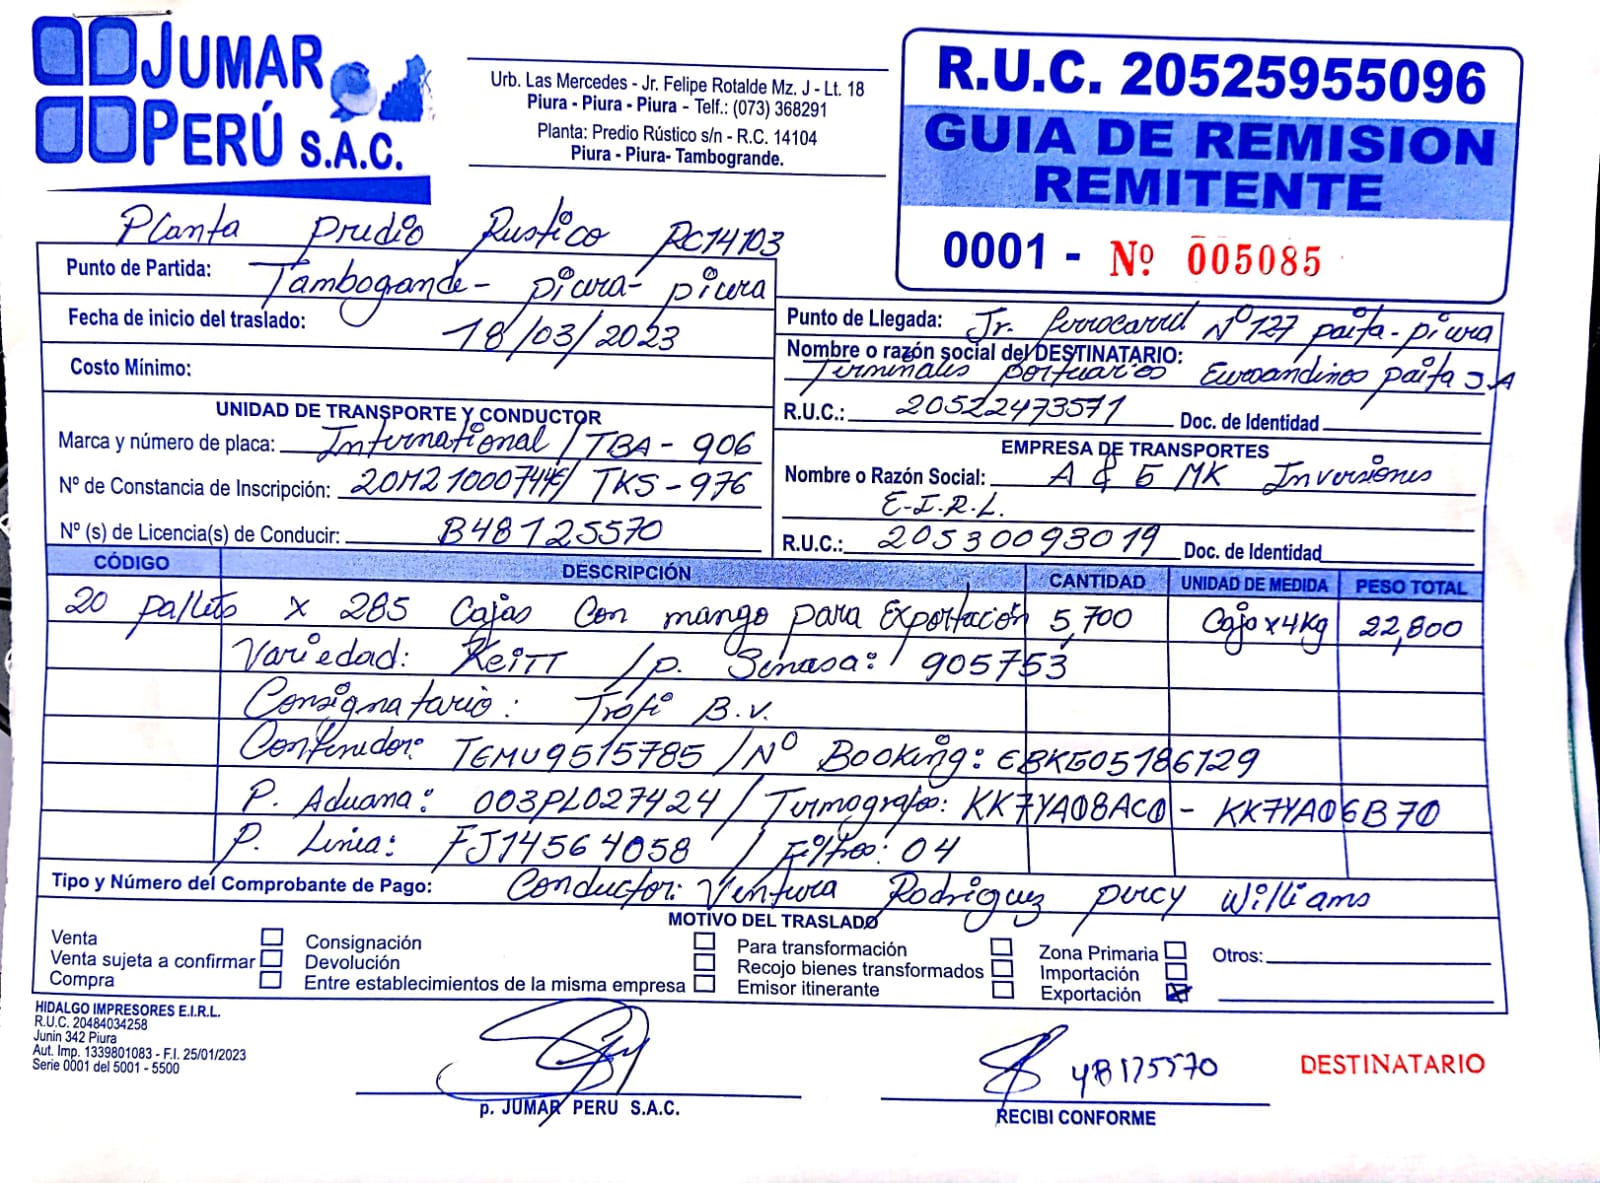 JUMAR
PERÚ S.A.C.
Urb. Las Mercedes - Jr. Felipe Rotalde Mz. J - Lt. 18
Piura - Piura - Piura - Telf.: (073) 368291
Planta: Predio Rústico s/n - R.C. 14104
Piura - Piura- Tambogrande.
R.U.C. 20525955096
GUIA DE REMISION
REMITENTE
0001 - Nº 005085
Planta Predio Rustico RC14103
Punto de Partida: Tambogande - piura - piura
Fecha de inicio del traslado: 18/03/2023
Costo Mínimo:
Punto de Llegada: Jr. ferrocarril Nº 127 paita - piura
Nombre o razón social del DESTINATARIO:
Terminales portuarios Euroandinos paita S.A
R.U.C.: 20522473571 Doc. de Identidad
UNIDAD DE TRANSPORTE Y CONDUCTOR
Marca y número de placa: International / TBA - 906
Nº de Constancia de Inscripción: 20M21000744E/ TKS - 976
Nº (s) de Licencia(s) de Conducir: B48125570
EMPRESA DE TRANSPORTES
Nombre o Razón Social: A & E MK Inversiones
E.I.R.L.
R.U.C.: 20530093019 Doc. de Identidad
CÓDIGO DESCRIPCIÓN CANTIDAD UNIDAD DE MEDIDA PESO TOTAL
20 pallets x 285 Cajas Con mango para Exportación 5,700 Caja x 4Kg 22,800
Variedad: KEITT / p. Senasa: 905753
Consignatario: Trofi B.V.
Contenedor: TEMU9515785 / Nº Booking: EBKG05186129
P. Aduana: 003PL027424 / Termografos: KK7YA08AC0 - KK7YA06B70
P. Linea: FJ14564058 / Filtros: 04
Tipo y Número del Comprobante de Pago: Conductor: Ventura Rodriguez percy Williams
MOTIVO DEL TRASLADO
Venta
Venta sujeta a confirmar
Compra
Consignación
Devolución
Entre establecimientos de la misma empresa
Para transformación
Recojo bienes transformados
Emisor itinerante
Zona Primaria
Importación
Exportación
Otros:
HIDALGO IMPRESORES E.I.R.L.
R.U.C. 20484034258
Junin 342 Piura
Aut. Imp. 1339801083 - F.I. 25/01/2023
Serie 0001 del 5001 - 5500
p. JUMAR PERU S.A.C.
48125570
RECIBI CONFORME
DESTINATARIO